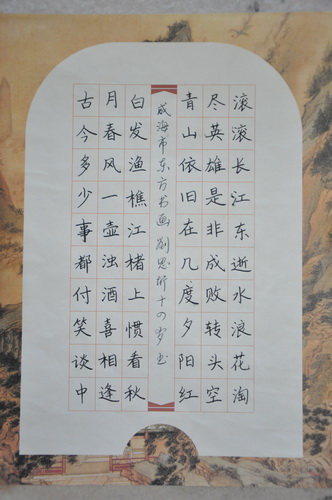 滚滚长江东逝水浪花淘
尽英雄是非成败转头空
青山依旧在几度夕阳红
威海市东方书画 刘思十四岁书
白发渔樵江楮上惯看秋
月春风一壶浊酒喜相逢
古今多少事都付笑谈中